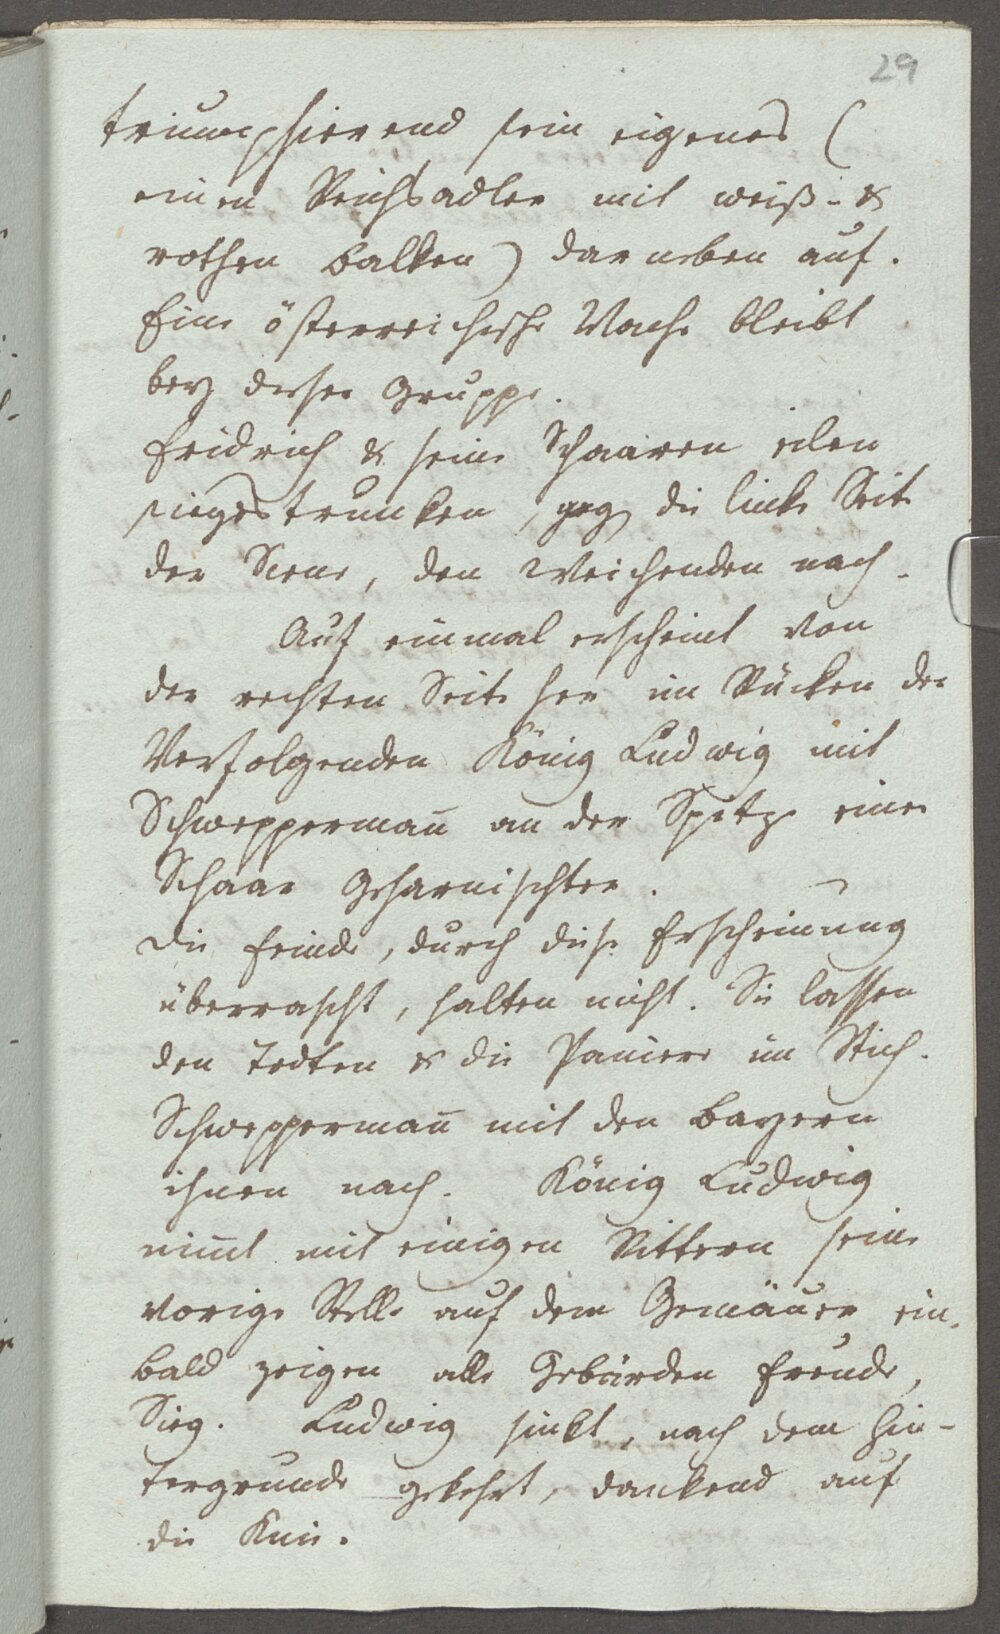 29
triumphierend sein eigenes (
einen Reichsadler mit weiß- &
rothen Balken) darneben auf.
Eine österreichische Wache bleibt
bey dieser Gruppe.
Fridrich & seine Schaaren eilen
siegestrunken, geg die linke Seite
der Scene, den Weichenden nach.
Auf einmal erscheint von
der rechten Seite her im Rücken der
Verfolgenden König Ludwig mit
Schweppermañ an der Spitze einer
Schaar Geharnischter.
Die Feinde, durch diese Erscheinung
überrascht, halten nicht. Sie lassen
den Todten & die Paniere im Stich.
Schweppermañ mit den Bayern
ihnen nach. König Ludwig
nim̄t mit einigen Rittern seine
vorige Stelle auf dem Gemäuer ein.
Bald zeigen alle Gebärden Freude,
Sieg. Ludwig sinkt, nach dem Hin-
tergrunde gekehrt, dankend auf
die Knie.